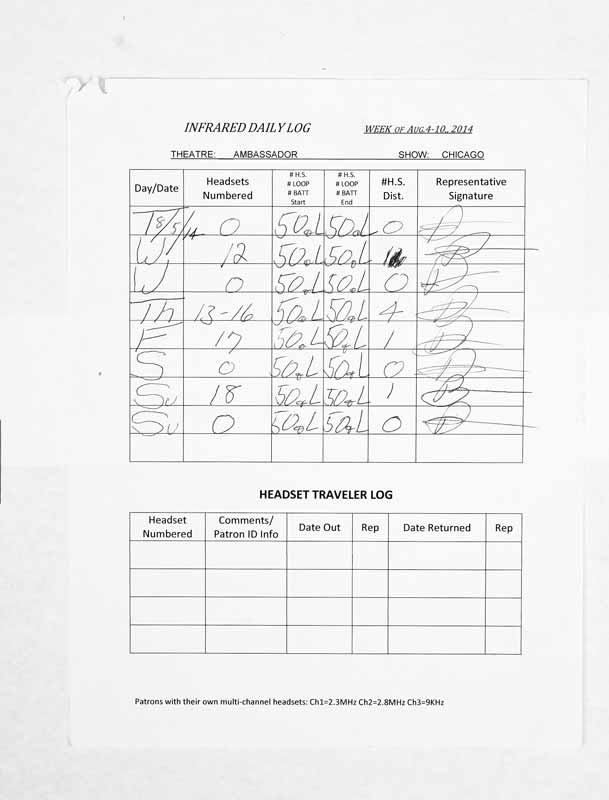 INFRARED DAILY LOG WEEK OF AUG.4-10, 2014
THEATRE: AMBASSADOR SHOW: CHICAGO
Day/Date Headsets Numbered # H.S. # LOOP # BATT Start # H.S. # LOOP # BATT End #H.S. Dist. Representative Signature
T 8/5/14 0 0
W 12
W 0 0
Th 13-16 4
F 17 1
S 0 0
Su 18 1
Su 0 0
HEADSET TRAVELER LOG
Headset Numbered Comments/ Patron ID Info Date Out Rep Date Returned Rep
Patrons with their own multi-channel headsets: Ch1=2.3MHz Ch2=2.8MHz Ch3=9KHz